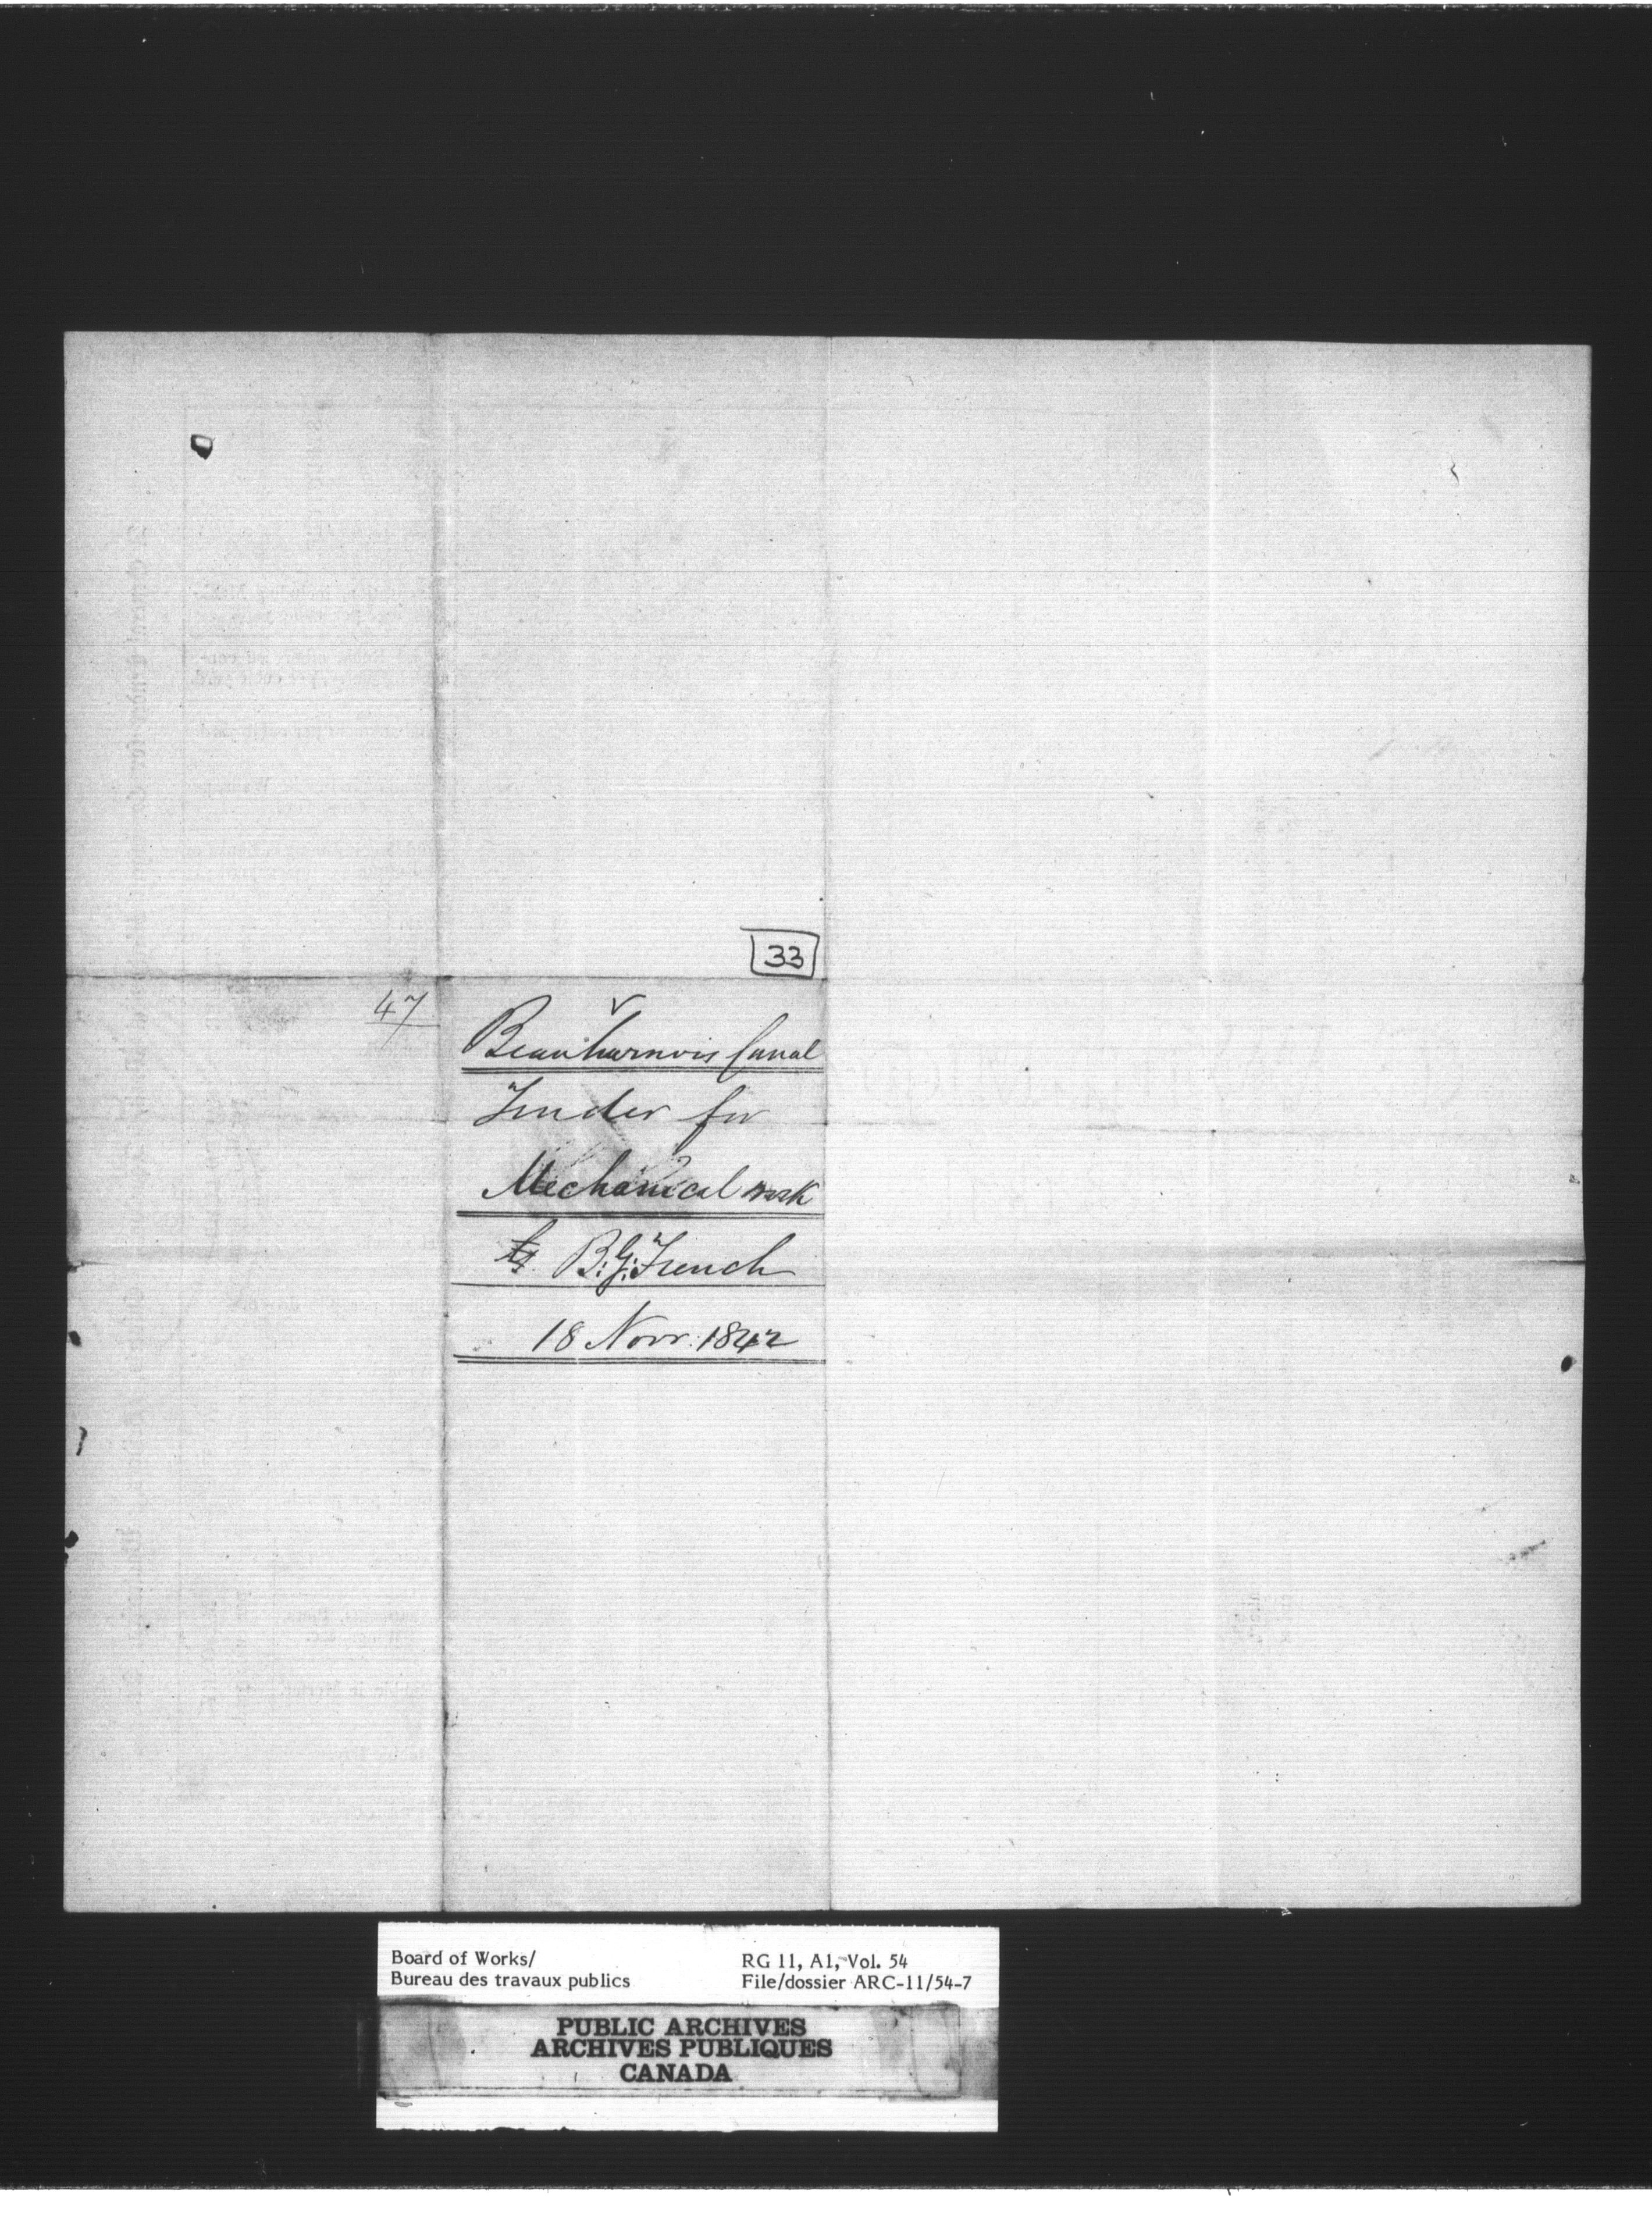 33
47
Beauharnois Canal
Tender for
Mechanical work
by B: G: French
18 Novr. 1842
Board of Works/
Bureau des travaux publics
RG 11, A1, Vol. 54
File/dossier ARC-11/54-7
PUBLIC ARCHIVES
ARCHIVES PUBLIQUES
CANADA